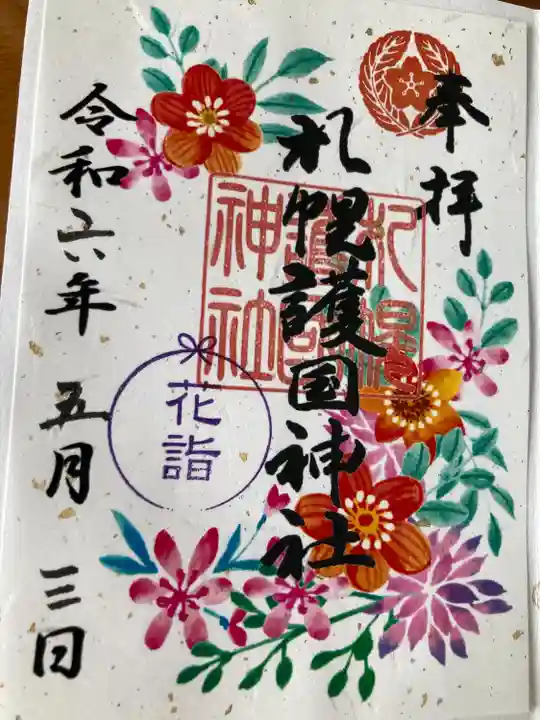 奉拝
札幌護国神社
札幌
護国
神社
花詣
令和六年五月三日